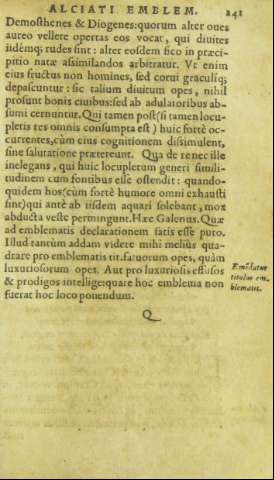 ALCIATI EMBLEM. 241
Demosthenes & Diogenes: quorum alter oues
aureo vellere opertas eos vocat, qui diuites
iidémq; rudes sint: alter eosdem fico in præci-
pitio natæ assimilandos arbitratur. Vt enim
eius fructus non homines, sed corui graculiq;
depascuntur: sic talium diuitum opes, nihil
prosunt bonis ciuibus: sed ab adulatoribus ab-
sumi cernuntur. Qui tamen post (si tamen locu-
pletis res omnis consumpta est) huic fortè oc-
currentes, cùm eius cognitionem dissimulent,
sine salutatione prætereunt. Qua de re nec ille
inelegans, qui huic locupletum generi simili-
tudinem cum fontibus esse ostendit: quando-
quidem hos (cùm fortè humore omni exhausti
sint) qui antè ab iisdem aquari solebant, mox
abducta veste permingunt. Hæc Galenus. Quæ
ad emblematis declarationem satis esse puto.
Illud tantùm addam videre mihi meliùs qua-
drare pro emblematis tit. fatuorum opes, quàm
luxuriosorum opes. Aut pro luxuriosis effusos
& prodigos intellige: quare hoc emblema non
fuerat hoc loco ponendum.
Emédatur
titulus em-
blematis.
Q